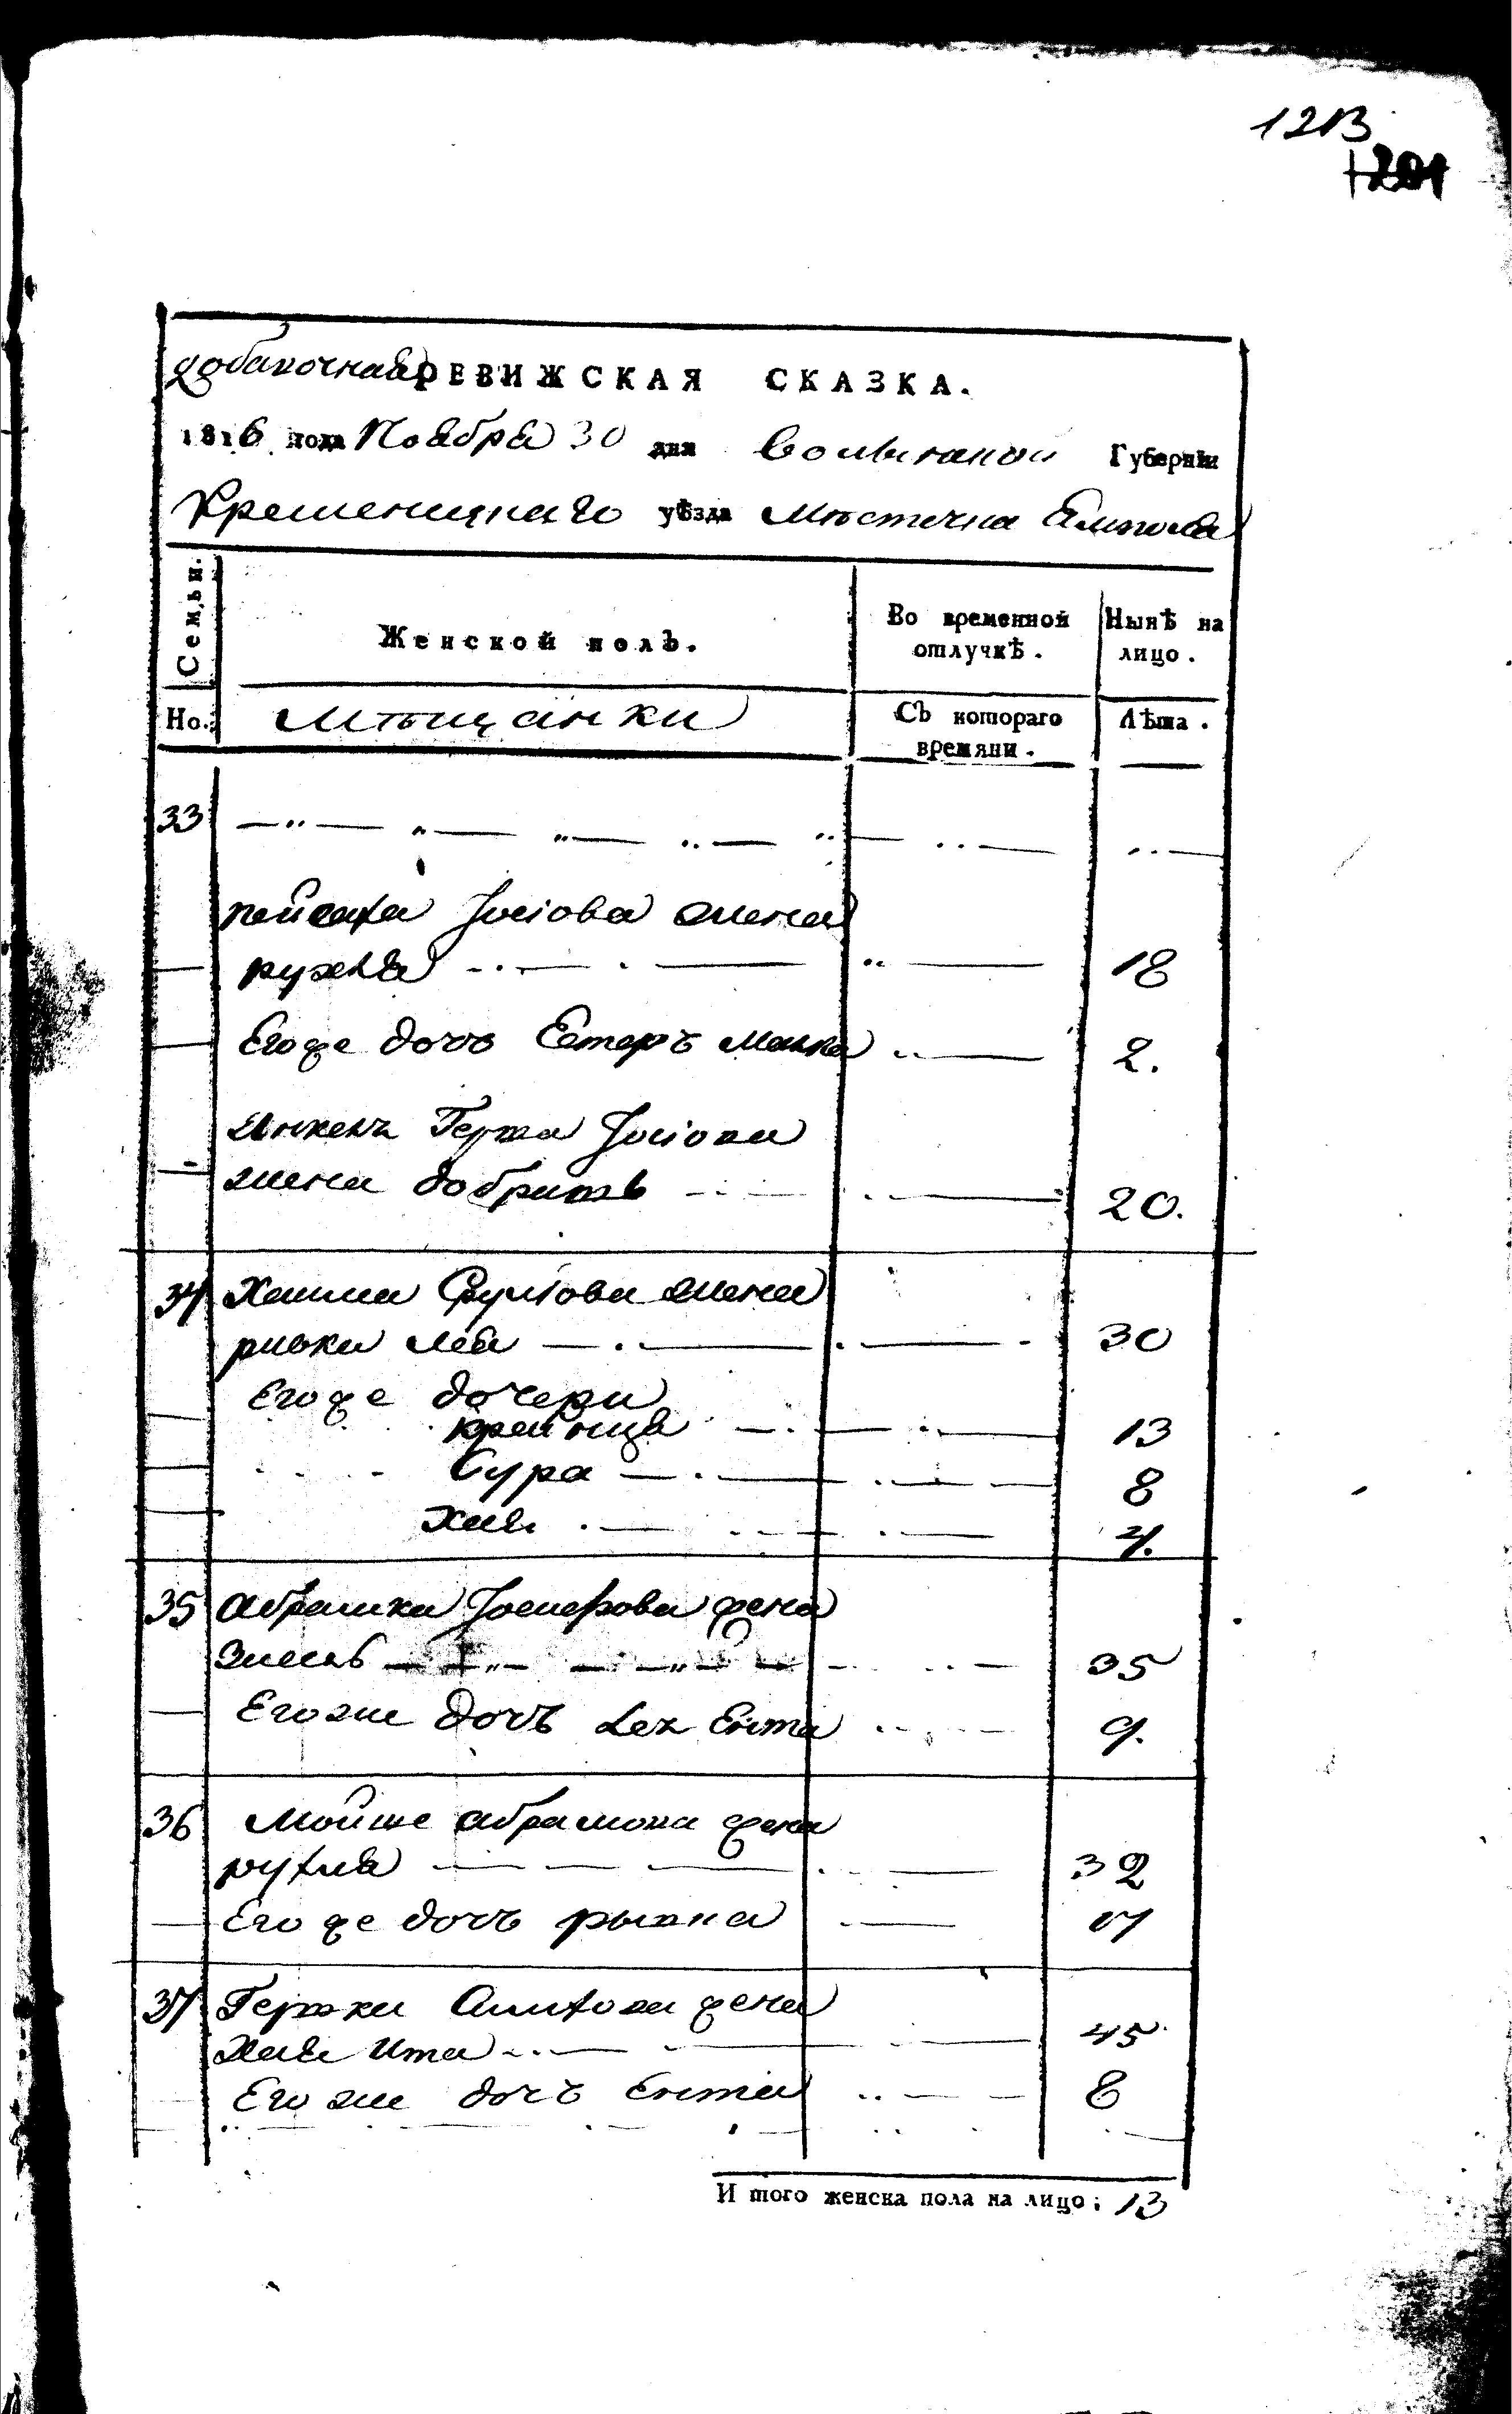 1213
1201
добавочная РЕВИЖСКАЯ СКАЗКА.
1816 года Ноября 30 дня Волынской Губерніи
Кременицкаго уѣзда Мѣстечка Ямполя
Семьи. Женской полъ. Во временной отлучкѣ. Нынѣ на лицо.
Но. Мѣщанки Съ котораго времяни. Лѣта.
33
пейсаха Јосіова жена
рухля 18
Егоже дочь Естеръ Малка 2.
Герша Јосіова
жена добришь 20.
34 Хаима Сруліова жена
ривка леа 30
Егоже дочери
крейнца 13
Сура 8
Хая 4.
35 абрамка Јосиефова жена
35
Егоже дочь Ента 9.
36 Мойше абрамова жена
рухля 32
Егоже дочь 7
37 Гершки жена
Хая Ита 45
Егоже дочъ Ента 8
И того женска пола на лицо; 13